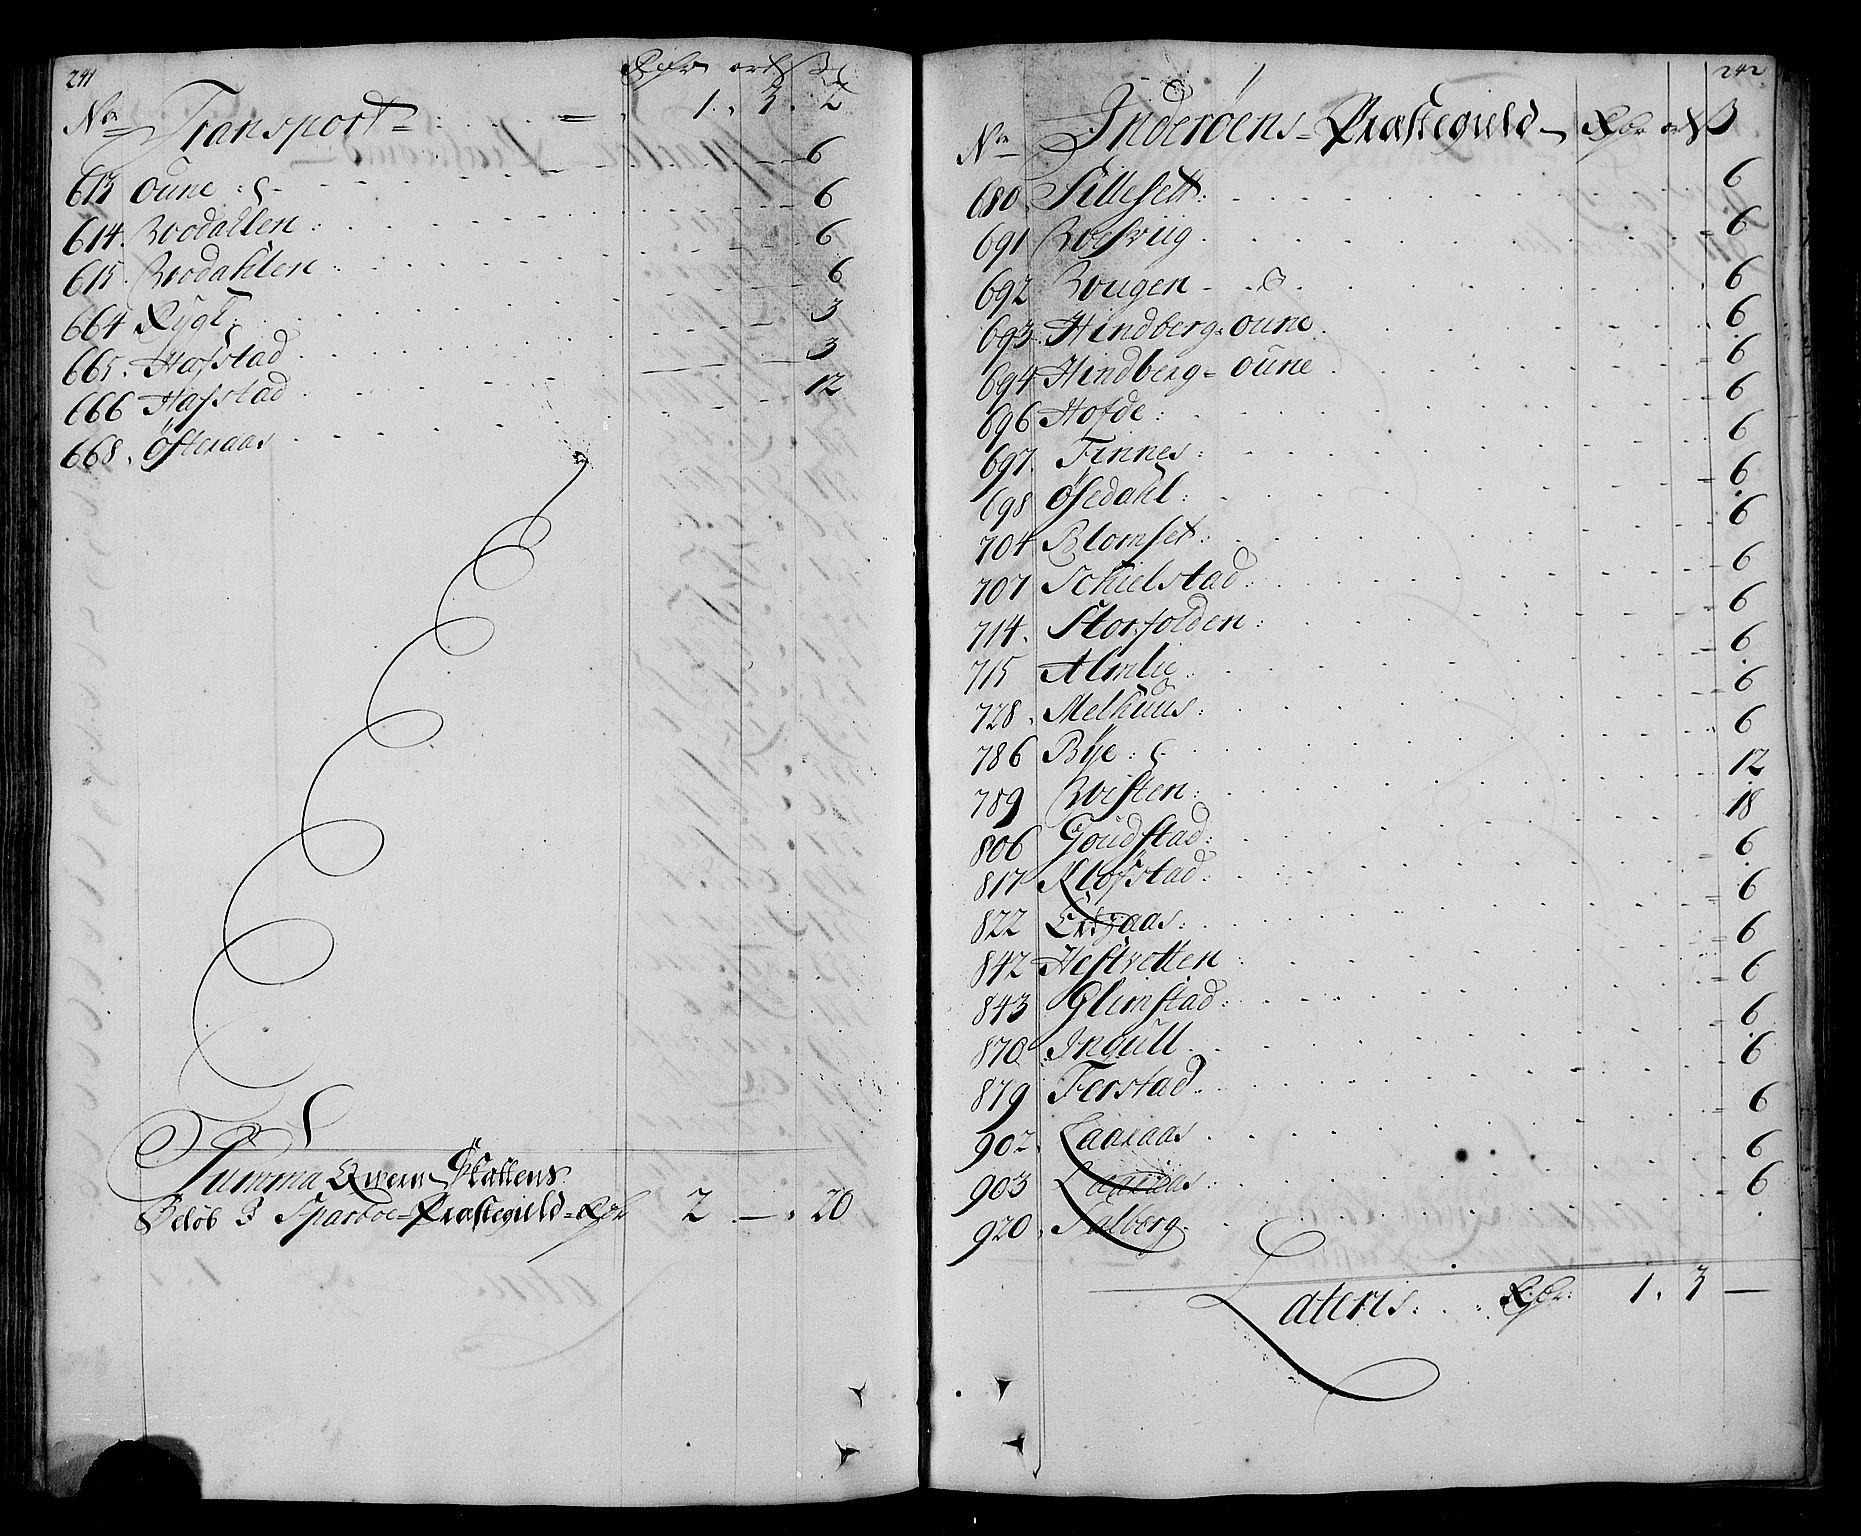 241
Rdr ort ß
No Transport 1. 3. 2
613 Oune 6
614. Brodahlen 6
615. Brodahlen 6
664 Rygl 6
665. Hafstad 3
666 Hafstad 3
668. Østeraas 12
Summa Qwern Skattens
Beløb I Sparboe Præstegield Rdr 2 — 20
242
No Inderøens Præstegield Rdr ort ß
680 Sillesett 6
691 Roesviig 6
692 Bougen 6
693 Hindberg oune 6
694 Hindberg oune 6
696 Hofde 6
697. Finnes 6
698 Øsedahl 6
704 Blomset 6
707 Schielstad 6
714. Storfolden 6
715 Almlie 6
728. Melhuus 6
786 Bÿe 6
789 Roesten 12
806 Goudstad 18
817 Klofstad 6
822 6
842 Hestrotten 6
843 Glimstad 6
870 Ingull 6
879 Ferstad 6
902. Laaraas 6
903 Laaraas 6
920. Salberg 6
Lateris Rdr 1. 3 —